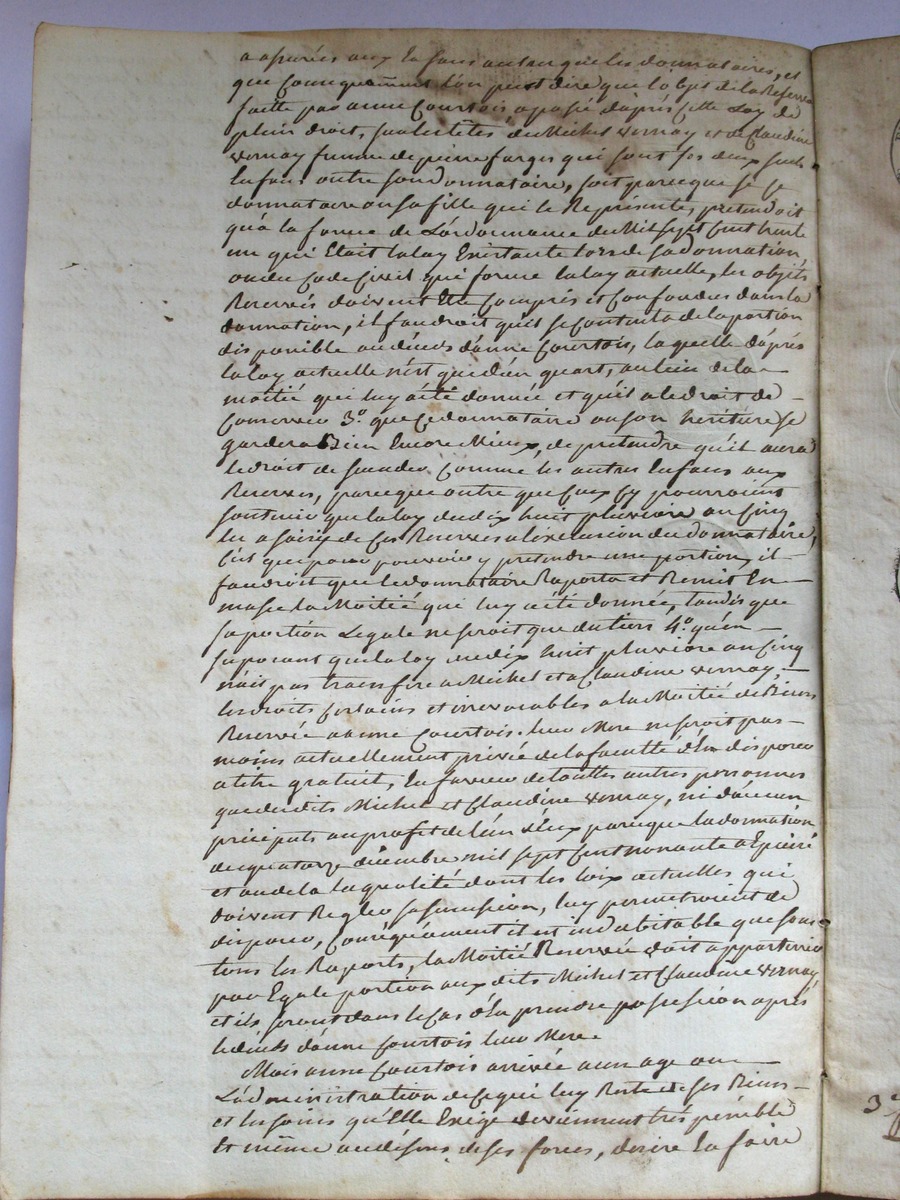 assurées aux Enfans autan que les donnataires, et
que Consequament l'on peut dire que l'objet de la Reserve
faitte par anne Courtois, a passé d'après cette Loy de
plein droit, sur les têtes de Michel vernay et de Claudine
vernay femme de pierre farges qui sont ses deux seuls
Enfans outre son donnataire, soit parceque si ce
donnataire ou sa fille qui le Représente, prétendoit
qu'à la forme de L'ordonnance de Mil sept Cent trente
un qui Etait la loy Existante lors de sa donnation,
ou du Code Civil qui forme la loy actuelle, les objets
Reservés doivent Etre Compris et Confondus dans la
donnation, il faudroit qu'il se Contenta de la portion
disponible au décès d'anne Courtois, la quelle d'après
la loy actuelle n'est que d'un quart, au lieu de la
moitié qui luy a été donnée et qu'il a le droit de
Conserver 3.º que Ce donnataire ou son héritière se
gardera Bien Encore Mieux, de prétendre qu'il aura
le droit de succeder Comme les autres Enfans aux
Reserves, parceque outre que Ceux Cy pourroient
soutenir que la loy du dix huit pluviose an Cinq
les a saisis de Ces Reserves a l'exclusion du donnataire,
C'est que pour pouvoir y prétendre une portion, il
faudroit que le donnataire Raporta et Remit En
masse la Moitié qui luy a été donnée, tandis que
sa portion Legale ne seroit que du tiers 4.º qu'en
suposant que la loy du dix huit pluviose an Cinq
n'ait pas transféré a Michel et a Claudine vernay,
les droits Certains et irrevocables a la Moitié de Biens
Reservée a anne Courtois. leur Mere ne seroit pas
moins actuellement privée de la faculté d'En disposer
a titre gratuit, En faveur de touttes autres personnes
que desdits Michel et Claudine vernay, ni d'aucun
précipût au profit de l'un d'Eux parceque la donnation
du quatorze décembre mil sept Cent nonante a Epuisé
et au dela la qualité dont les loix actuelles qui
doivent Regler sa succession, luy permetroient de
disposer, Conséquament il est indubitable que sous
tous les Raports, la Moitié Reservée doit appartenir
par Egale portion aux dits Michel et Claudine vernay
et ils seront dans le Cas d'En prendre possession après
le décès d'anne Courtois leur Mere.
Mais anne Courtois arrivée a un age ou
L'administration de Ce qui luy Reste de ses Biens
et les soins qu'Elle Exige deviennent très pénible
Et même au dessus de ses forces, desire En faire